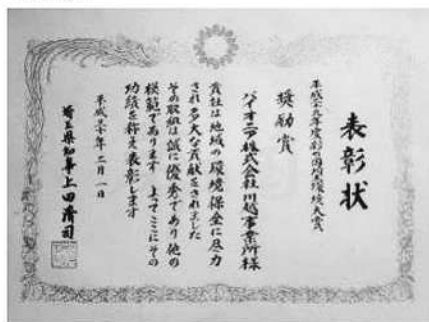 表彰状
平成十九年度彩の国埼玉環境大賞
奨励賞
パイオニア株式会社川越事業所様
貴社は地域の環境保全に尽力
され多大な貢献をされました
その取組は誠に優秀であり他の
模範であります よってここにその
功績を称え表彰します
平成二十年二月一日
埼玉県知事上田清司